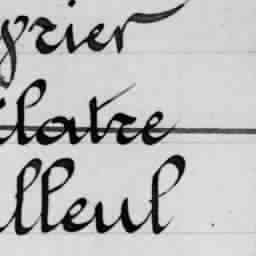 yrier
latre
lleul